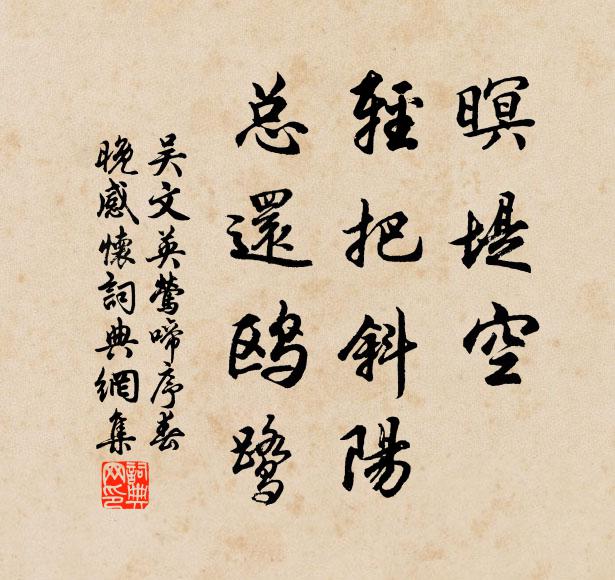 暝堤空
輕把斜陽
总還鸥鷺
吴文英鶯啼序春
晚感懷詞典網集
詞典
网印